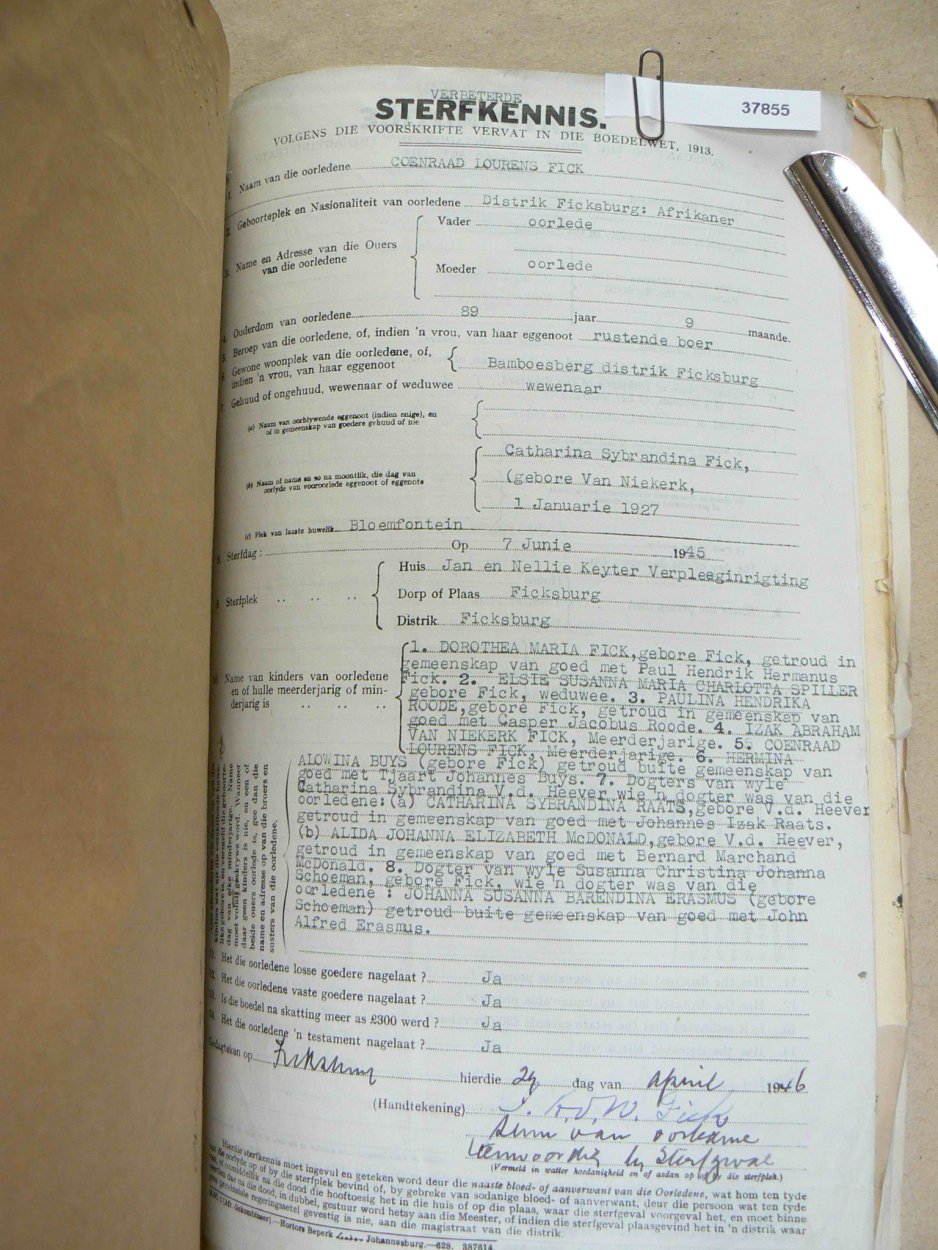 VERBETERDE
STERFKENNIS.
37855
VOLGENS DIE VOORSKRIFTE VERVAT IN DIE BOEDELWET, 1913.
1. Naam van die oorledene COENRAAD LOURENS FICK
2. Geboorteplek en Nasionaliteit van oorledene Distrik Ficksburg: Afrikaner
3. Name en Adresse van die Ouers van die oorledene
Vader oorlede
Moeder oorlede
4. Ouderdom van oorledene 89 jaar 9 maande.
5. Beroep van die oorledene, of, indien 'n vrou, van haar eggenoot rustende boer
6. Gewone woonplek van die oorledene, of,
indien 'n vrou, van haar eggenoot Bamboesberg distrik Ficksburg
7. Gehuud of ongehuud, wewenaar of weduwee wewenaar
(a) Naam van oorblywende eggenoot (indien enige), en
of in gemeenskap van goedere gehuud of nie
(b) Naam of name en so na moontlik, die dag van
oorlyde van vooroorlede eggenoot of eggenote
Catharina Sybrandina Fick,
(gebore Van Niekerk,
1 Januarie 1927
(c) Plek van laaste huwelik Bloemfontein
8. Sterfdag: Op 7 Junie 1945
9. Sterfplek
Huis Jan en Nellie Keyter Verpleeginrigting
Dorp of Plaas Ficksburg
Distrik Ficksburg
10. Name van kinders van oorledene
en of hulle meerderjarig of min-
derjarig is
1. DOROTHEA MARIA FICK,gebore Fick, getroud in
gemeenskap van goed met Paul Hendrik Hermanus
Fick. 2. ELSIE SUSANNA MARIA CHARLOTTA SPILLER
gebore Fick, weduwee. 3. PAULINA HENDRIKA
ROODE,gebore Fick, getroud in gemeenskap van
goed met Casper Jacobus Roode. 4. IZAK ABRAHAM
VAN NIEKERK FICK, Meerderjarige. 5. COENRAAD
LOURENS FICK, Meerderjarige. 6. HERMINA
ALOWINA BUYS (gebore Fick) getroud buite gemeenskap van
goed met Tjaart Johannes Buys. 7. Dogters van wyle
Catharina Sybrandina V.d. Heever wie 'n dogter was van die
oorledene:(a) CATHARINA SYBRANDINA RAATS,gebore V.d. Heever
getroud in gemeenskap van goed met Johannes Izak Raats.
(b) ALIDA JOHANNA ELIZABETH McDONALD,gebore V.d. Heever,
getroud in gemeenskap van goed met Bernard Marchand
McDonald. 8. Dogter van wyle Susanna Christina Johanna
Schoeman, gebore Fick, wie 'n dogter was van die
oorledene : JOHANNA SUSANNA BARENDINA ERASMUS (gebore
Schoeman) getroud buite gemeenskap van goed met John
Alfred Erasmus.
dag van elke minderjarige. Name
moet voluit geskrywe word. Wanneer
daar geen kinders is nie, en een of
beide ouers oorlede is, gee dan die
name en adresse op van die broers en
susters van die oorledene.
11. Het die oorledene losse goedere nagelaat ? Ja
12. Het die oorledene vaste goedere nagelaat ? Ja
13. Is die boedel na skatting meer as £300 werd ? Ja
14. Het die oorledene 'n testament nagelaat ? Ja
Gedagteken op Ficksburg hierdie 29 dag van April 1946
(Handtekening) Fick
seun van oorledene
teenwoordig by Sterfgeval
(Vermeld in watter hoedanigheid en of aldan op by die sterfplek.)
Hierdie sterfkennis moet ingevul en geteken word deur die naaste bloed- of aanverwant van die Oorledene, wat hom ten tyde
van die oorlyde op of by die sterfplek bevind of, by gebreke van sodanige bloed- of aanverwant, deur die persoon wat ten tyde
of onmiddellik na die dood die hooftoesig het in die huis of op die plaas, waar die sterfgeval voorgeval het, en moet binne
dae na die dood, in dubbel, gestuur word hetsy aan die Meester, of indien die sterfgeval plaasgevind het in 'n distrik waar
geen provinsiale regeringsetel gevestig is nie, aan die magistraat van die distrik.
Hortors Beperk Johannesburg.—628. 387614.